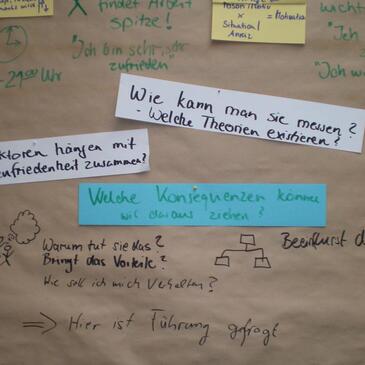 findet Arbeit
spitze!
"Ich bin sehr, sehr
zufrieden"
-21⁰⁰ Uhr
x
Situation/
Anreiz
= Motivation
"Ich
"Ich
Wie kann man sie messen?
- Welche Theorien existieren?
ktoren hängen mit
ufriedenheit zusammen?
Welche Konsequenzen können
wir daraus ziehen?
Warum tut sie das?
Bringt das Vorteile?
Wie soll ich mich verhalten?
Beeinflusst d
=> Hier ist Führung gefragt